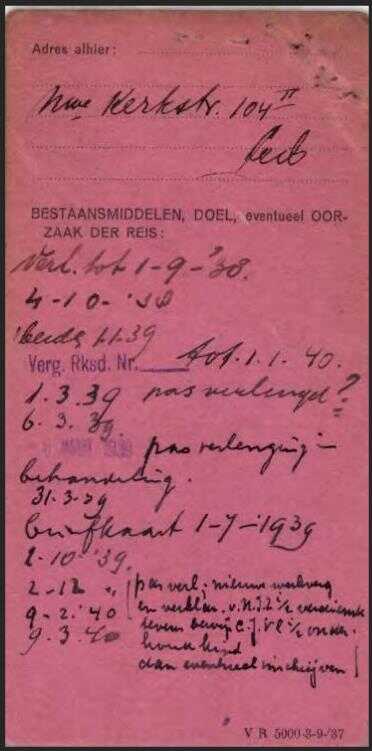 Adres alhier:
Nwe Kerkstr. 104 II
BESTAANSMIDDELEN, DOEL, eventueel OOR-
ZAAK DER REIS:
Verl. tot 1-9-'38.
4-10-'38
1.1.39
Verg. Rksd. Nr. tot 1.1.40.
1.3.39 pas verlengd?
6.3.39
MAART 1939 pas verlenging in
behandeling.
31-3-39
briefkaart 1-7-1939
2-10-'39.
2-12 " pas verl; nieuwe werkverg
9-2-'40 en verklar. v. N.J.L. verdienste
9.3.40 tevens bewijs C.J.V. onder-
houd kind
dan eventueel inschrijven
V R 5000-3-9-'37